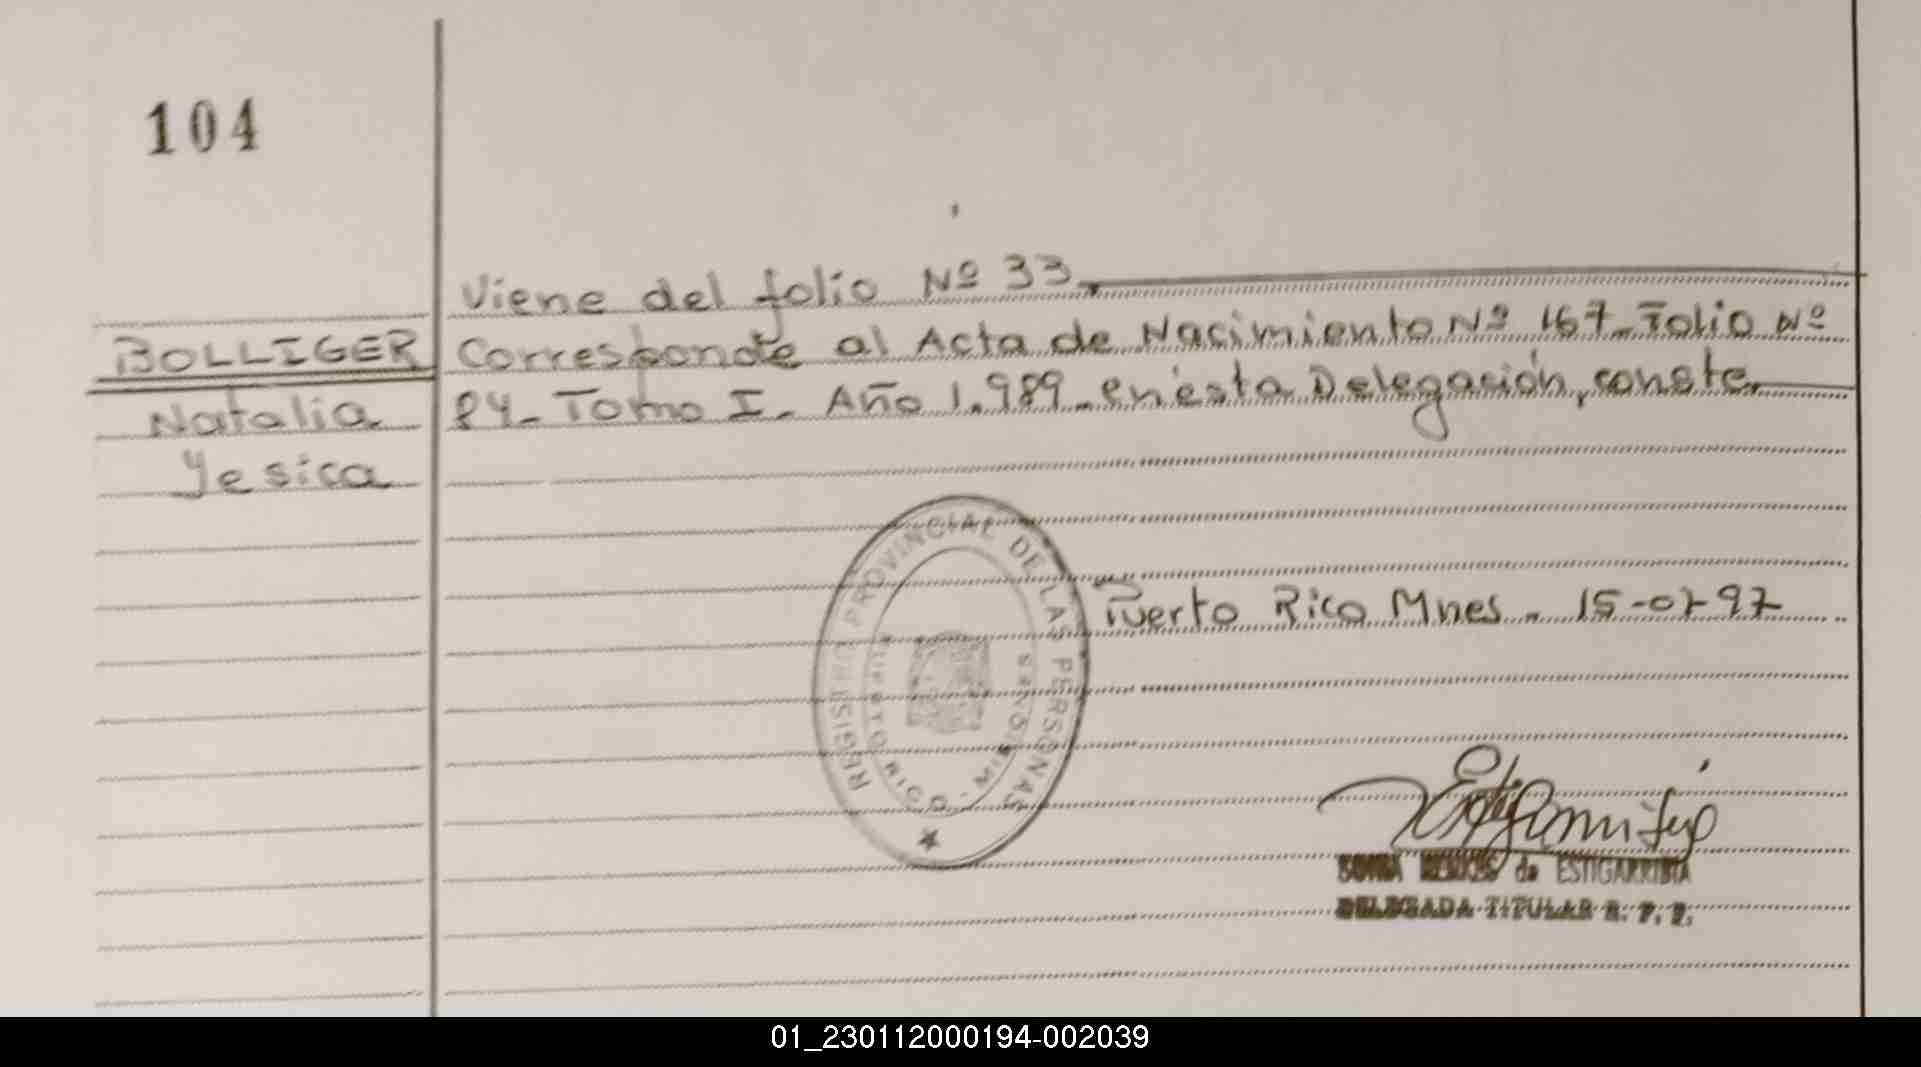 104
Viene del folio Nº 33.
BOLLIGER
Corresponde al Acta de Nacimiento Nº 167_ Folio Nº
Natalia
84_ Tomo I_ Año 1.989_ en ésta Delegación, conste.
Yesica
REGISTRO PROVINCIAL DE LAS PERSONAS
PUERTO RICO - MISIONES
Puerto Rico Mnes. 15-07-97
de ESTIGARRIBIA
DELEGADA TITULAR R. P. P.
01_230112000194-002039